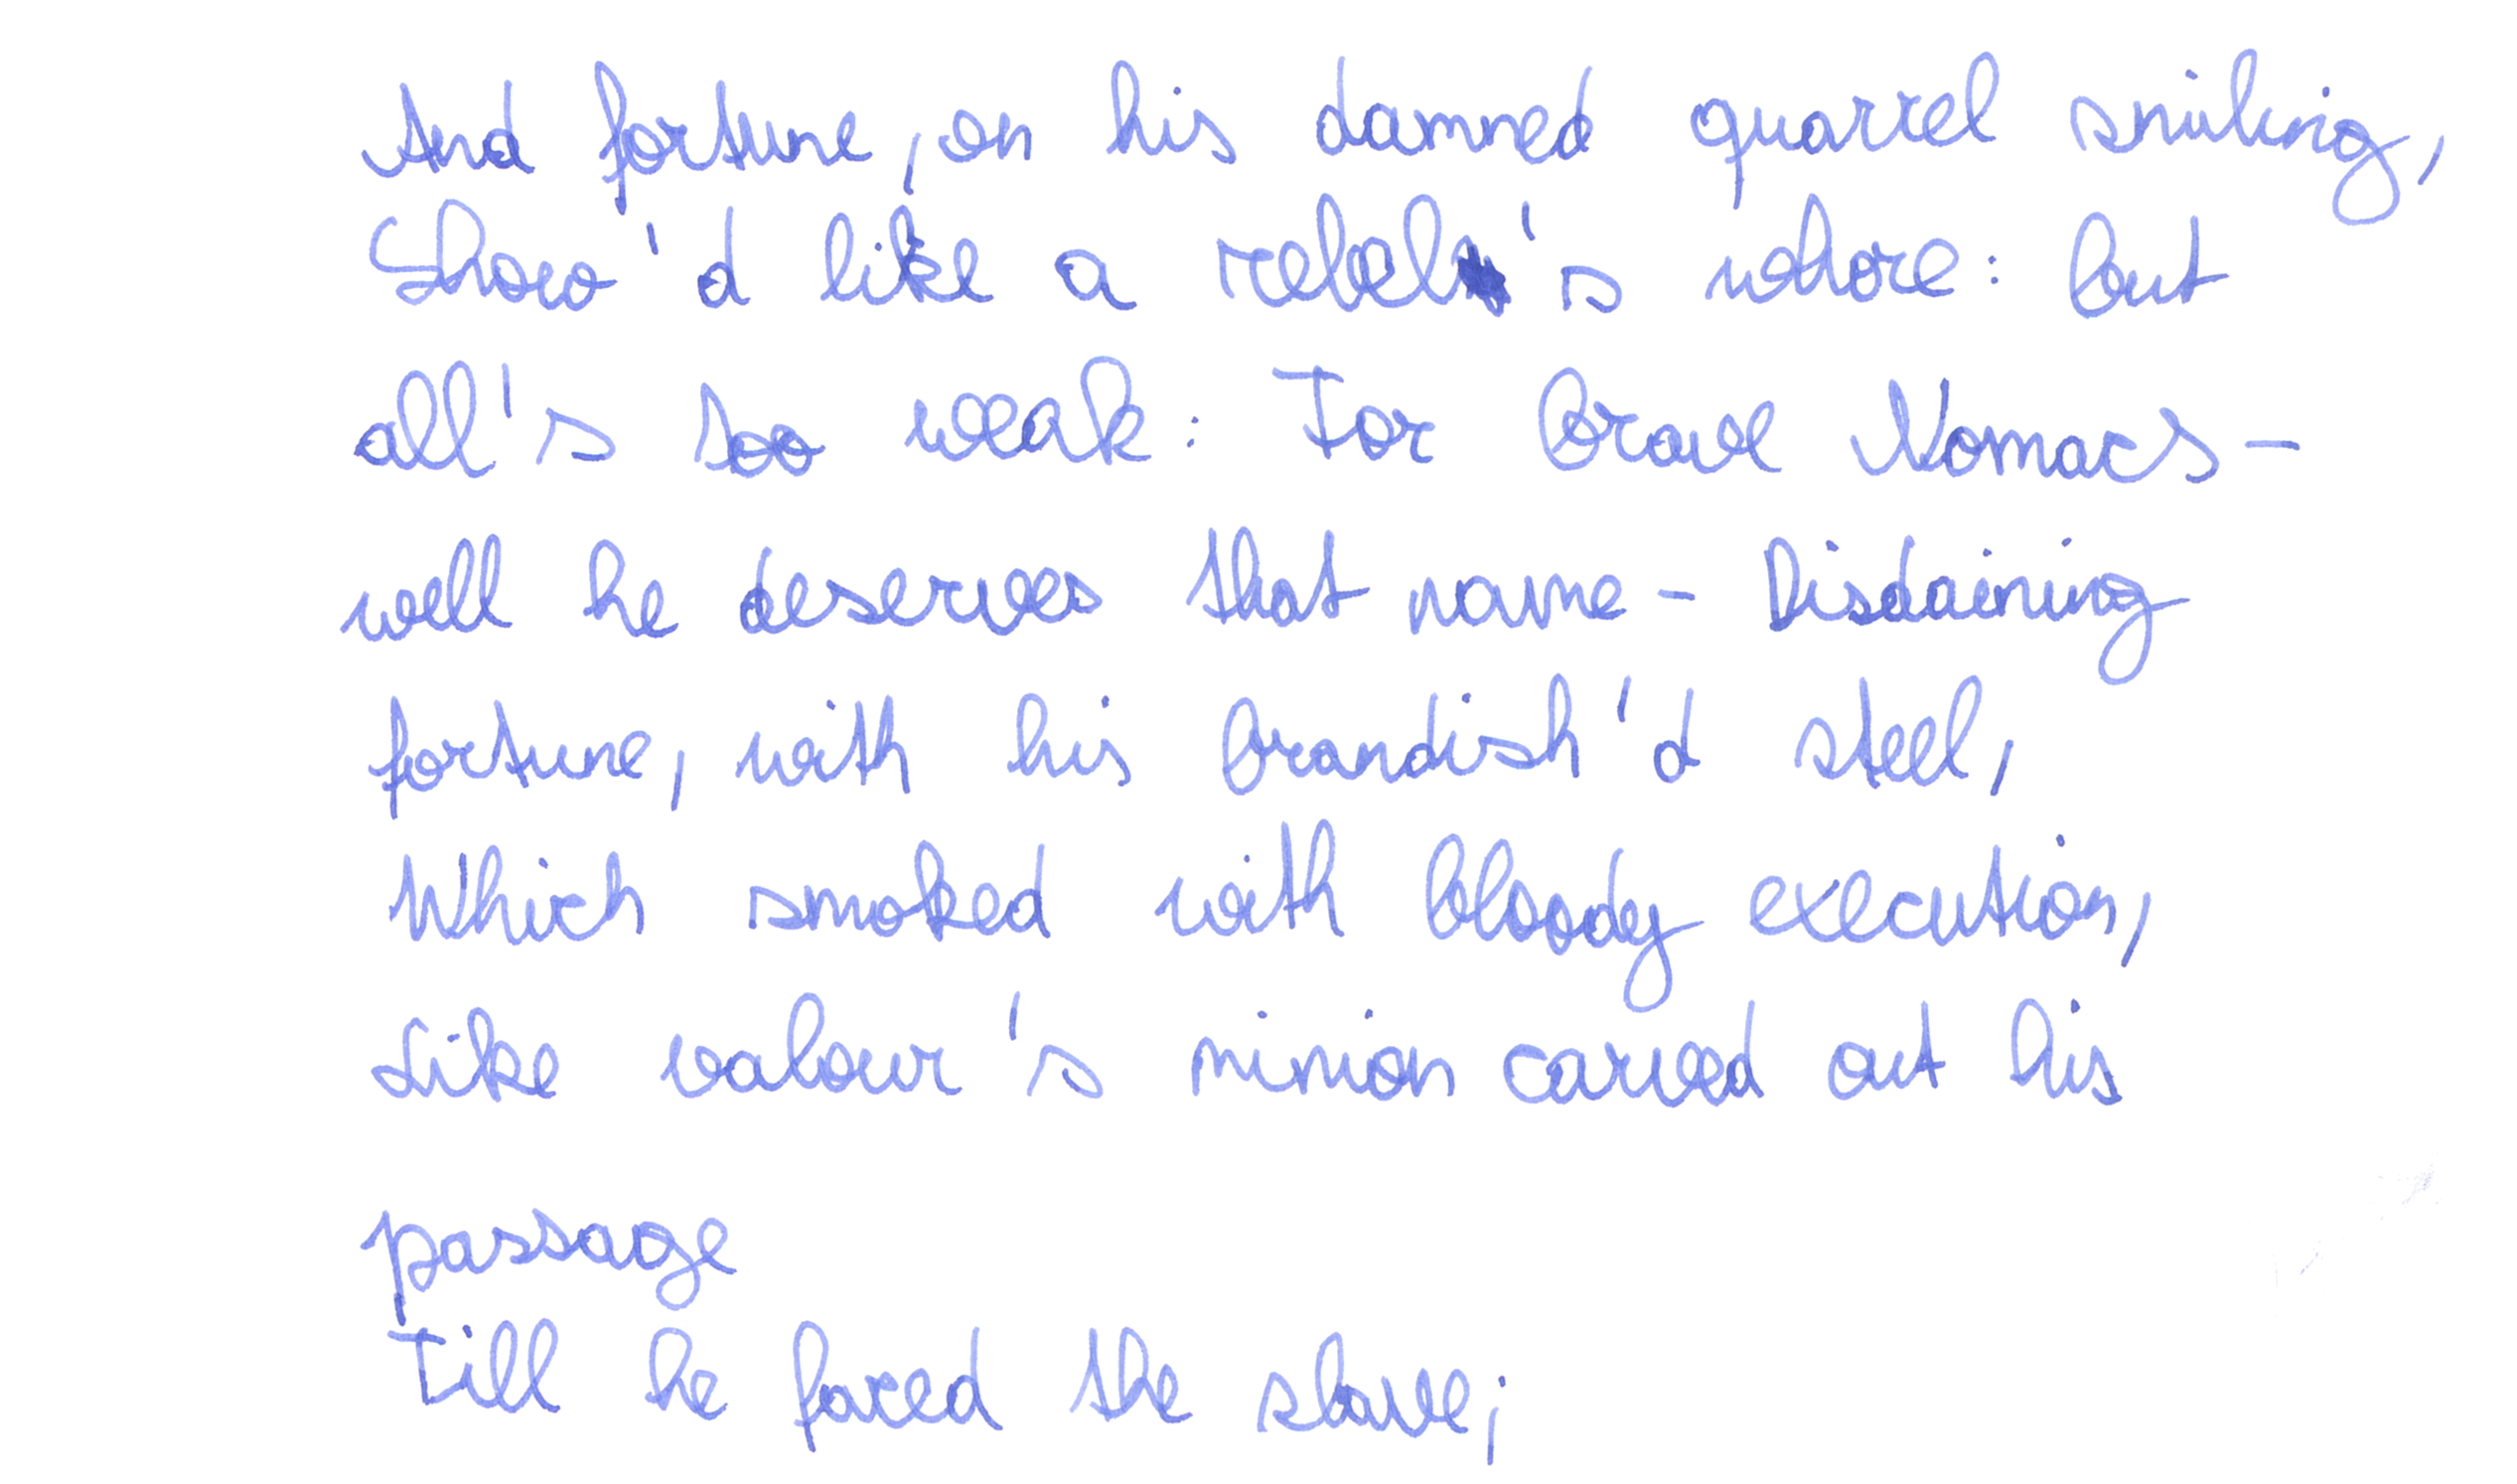 And fortune, on his damned quarrel smiling,
Show'd like a rebel's whore: but
all's too weak: For brave Nomacs -
well he deserves that name - Disdaining
fortune, with his brandish'd steel,
Which smoked with bloody execution,
Like valour's minion carved out his
passage
Till he faced the slave;